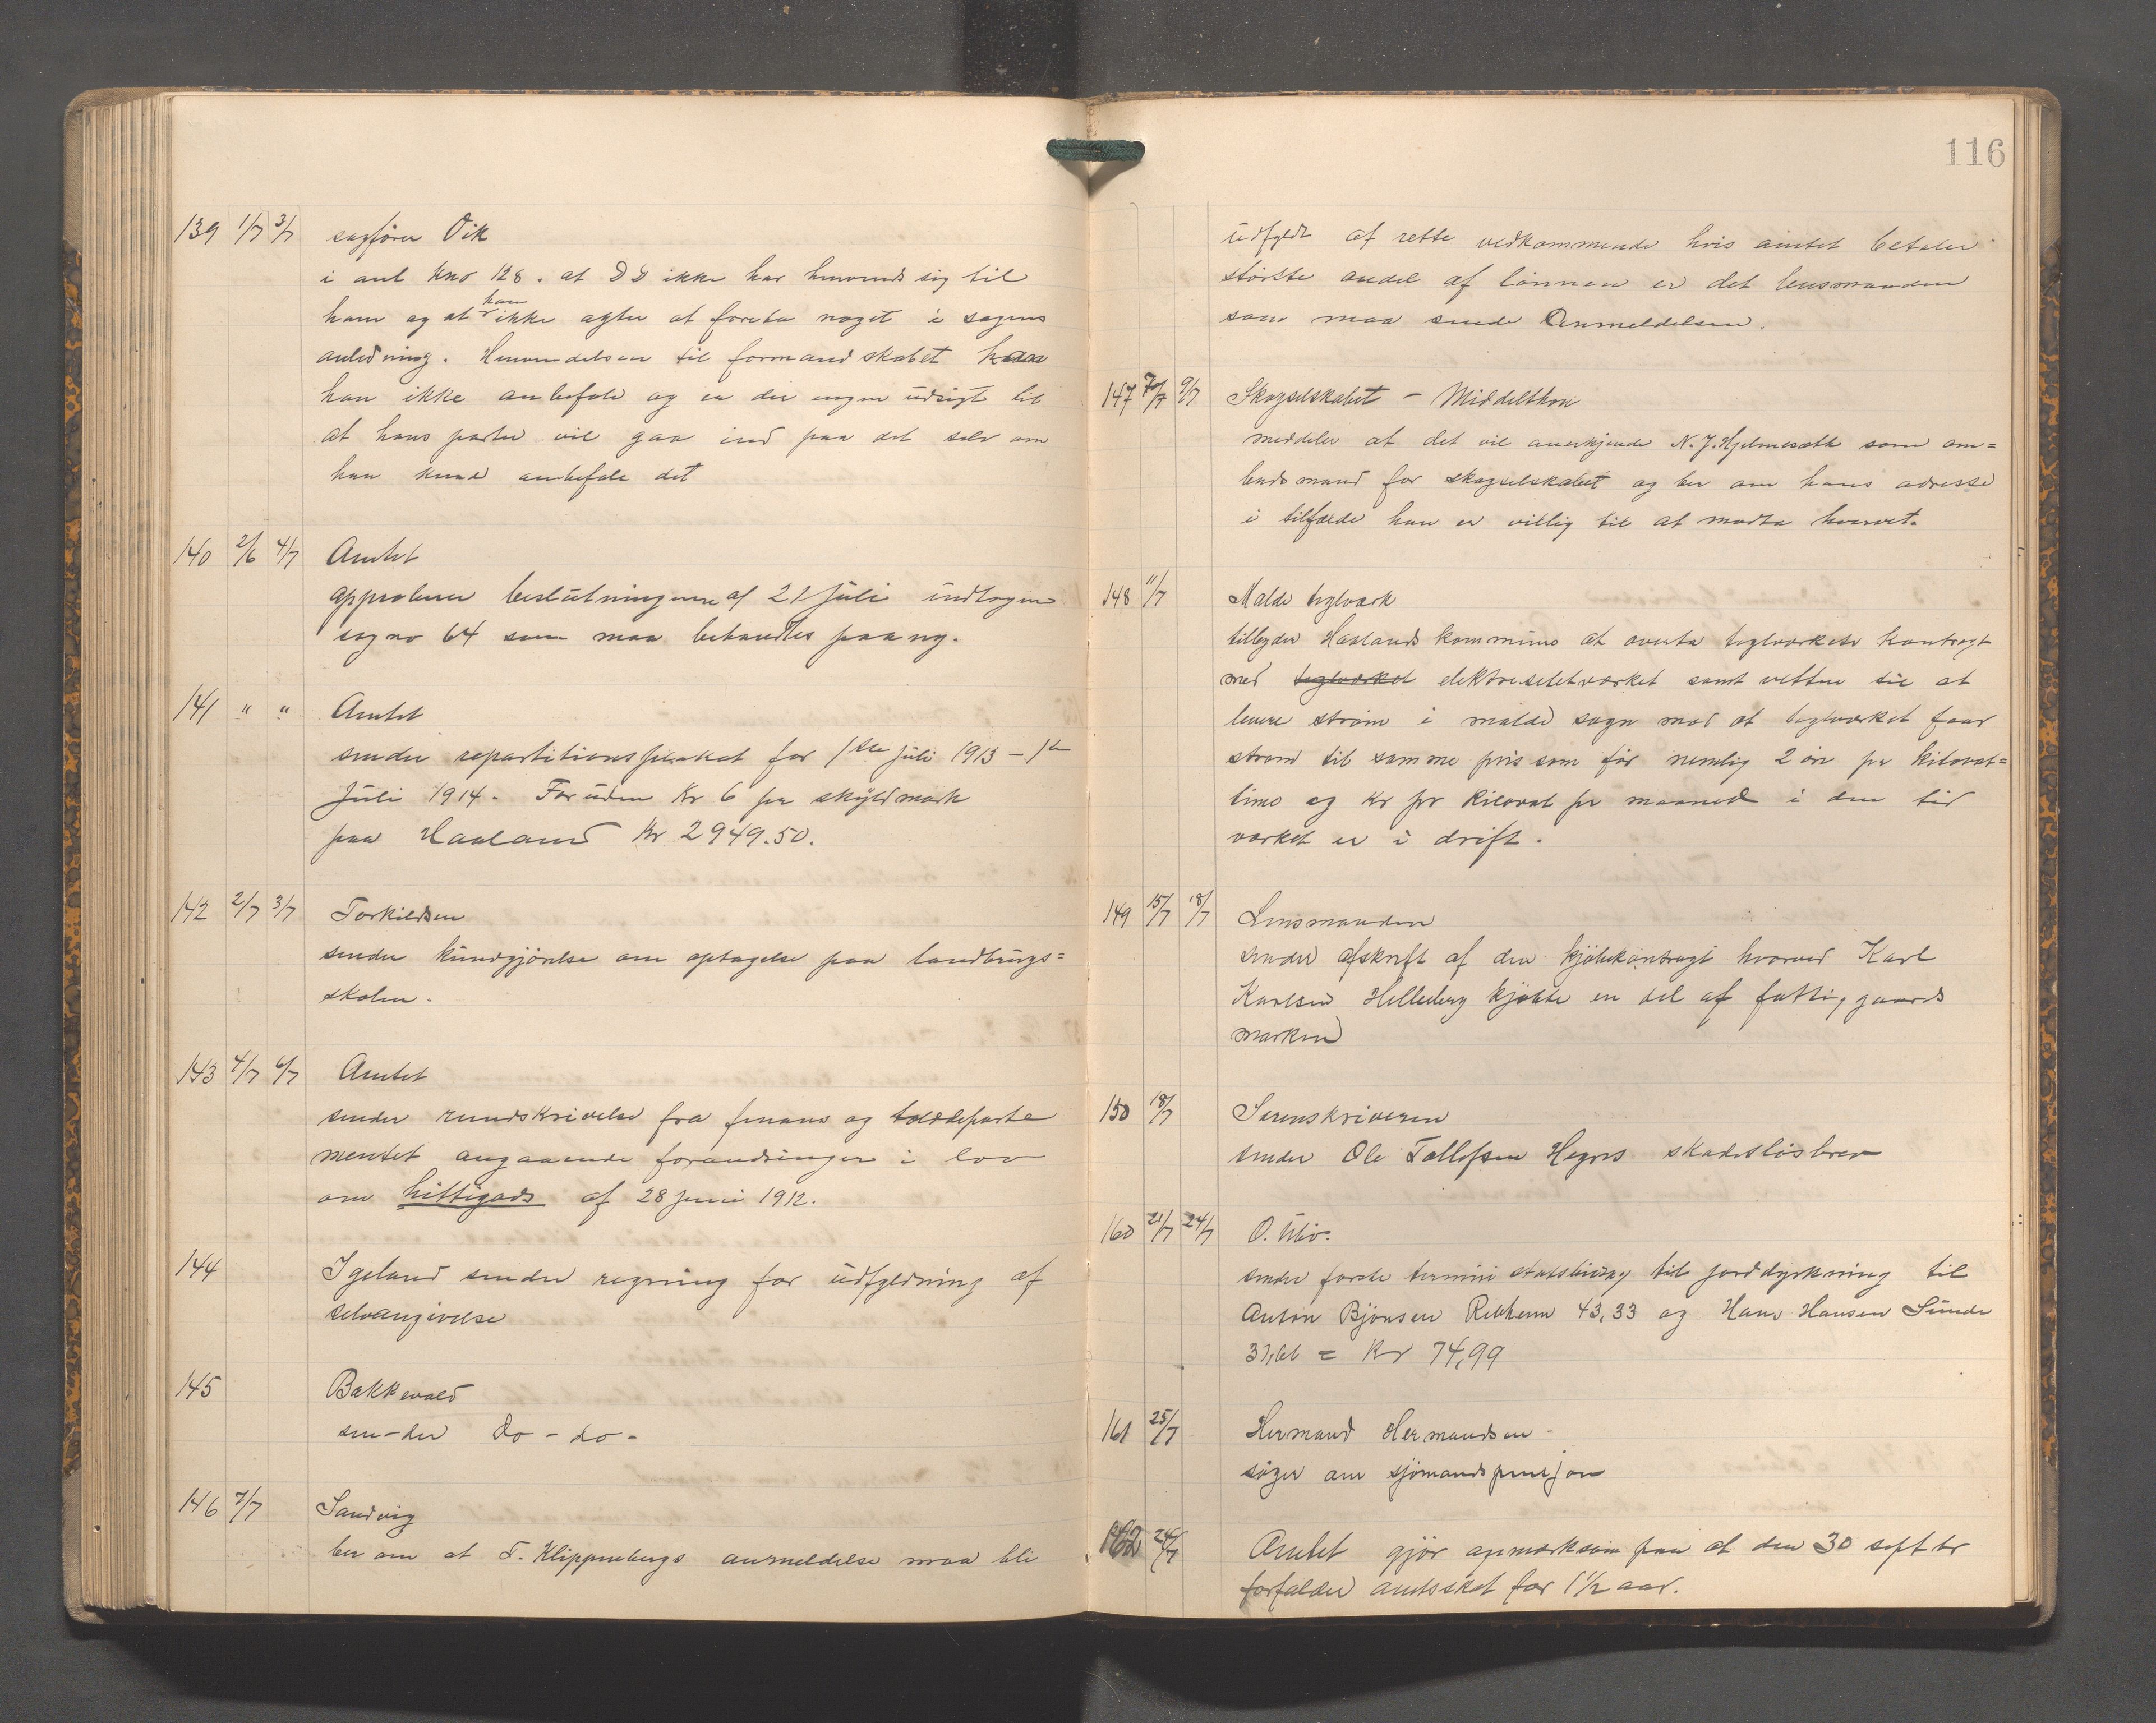 139 1/7 3/7 sagfører Vik
i anl kno 128. at DD ikke har henvendt sig til
ham og at han ikke agter at foreta noget i sagens
anledning. Henvendelsen til formandskabet
han ikke anbefale og er der ingen udsigt til
at hans parter vil gaa ind paa det selv om
han kunde anbefale det
140 2/6 4/7 Amtet
approberer beslutningerne af 21 Juli undtagen
sag no 64 som maa behandles paa ny.
141 " " Amtet
sender repartitionsplakat for 1ste juli 1913 – 1ste
Juli 1914. Foruden Kr 6 pr skyldmark
paa Haaland Kr 2949.50.
142 2/7 3/7 Torkildsen
sender kundgjørelse om optagelse paa landbrugs=
skolen.
143 4/7 6/7 Amtet
sender rundskrivelse fra finans og tolddeparte
mentet angaaende forandringer i lov
om hittigods af 28 juni 1912.
144 Igeland sender regning for udfyldning af
selvangivelse
145 Bakkevold
sen-der Do - do -
146 7/7 Sandvig
ber om at T. Klippenbergs anmeldelse maa bli
116
udfyldt af rette vedkommende hvis amtet betaler
største andel af lønnen er det lensmanden
som maa sende Anmeldelsen.
147 7/7 9/7 Skogselskabet – Middelthon
meddeler at det vil anerkjende N. J. Hjelmesæth som om=
budsmand for skogselskabet og ber om hans adresse
i tilfælde han er villig til at modta hvervet.
148 11/7 Malde teglværk
tilbyder Haalands kommune at overta teglværkets kontragt
med teglværket elektricitetværket samt retten til at
levere strøm i malde sogn mod at teglværket faar
strøm til samme pris som før nemlig 2 øre pr kilovat=
time og Kr pr kilovat pr maaned i den tid
værket er i drift.
149 15/7 18/7 Lensmanden
sender afskrift af den kjøbekontragt hvorved Karl
Karlsen Helleberg kjøbte en del af fattiggaards
marken
150 18/7 Sorenskriveren
sender Ole Tollefsen Hegres skadesløsbrev
160 21/7 24/7 O.
sender første termin statsbidrag til jorddyrkning til
Anton Bjønsen Rebheim 43,33 og Hans Hansen Sunde
31,66 = Kr 74,99
161 25/7 Hermand Hermandsen –
søger om sjømandspensjon
162 26/7 Amtet gjør opmærksom paa at den 30 septbr
forfalder amtsskat for 1 1/2 aar.